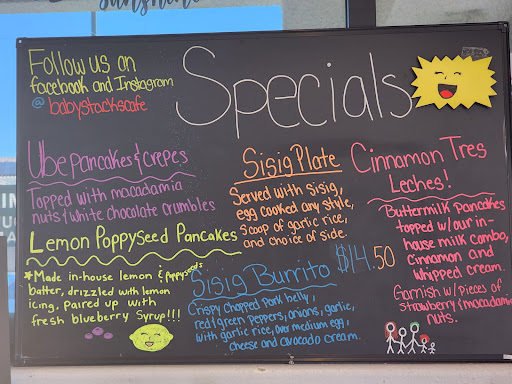 sunshine
Follow us on
facebook and Instagram
@ babystackscafe
Specials
Ube pancakes & crepes
Topped with macadamia
nuts & white chocolate crumbles
Lemon Poppyseed Pancakes
*Made in-house lemon & poppyseeds
batter, drizzled with lemon
icing. Paired up with
fresh blueberry syrup!!!
Sisig Plate
Served with sisig,
egg cooked any style,
scoop of garlic rice,
and choice of side.
$14.50
Sisig Burrito
Crispy chopped pork belly,
red & green peppers, onions, garlic,
with garlic rice, over medium egg,
cheese and avocado cream.
Cinnamon Tres
Leches!
Buttermilk pancakes
topped w/our in-
house milk combo,
cinnamon and
whipped cream.
Garnish w/pieces of
strawberry & macadamia
nuts.